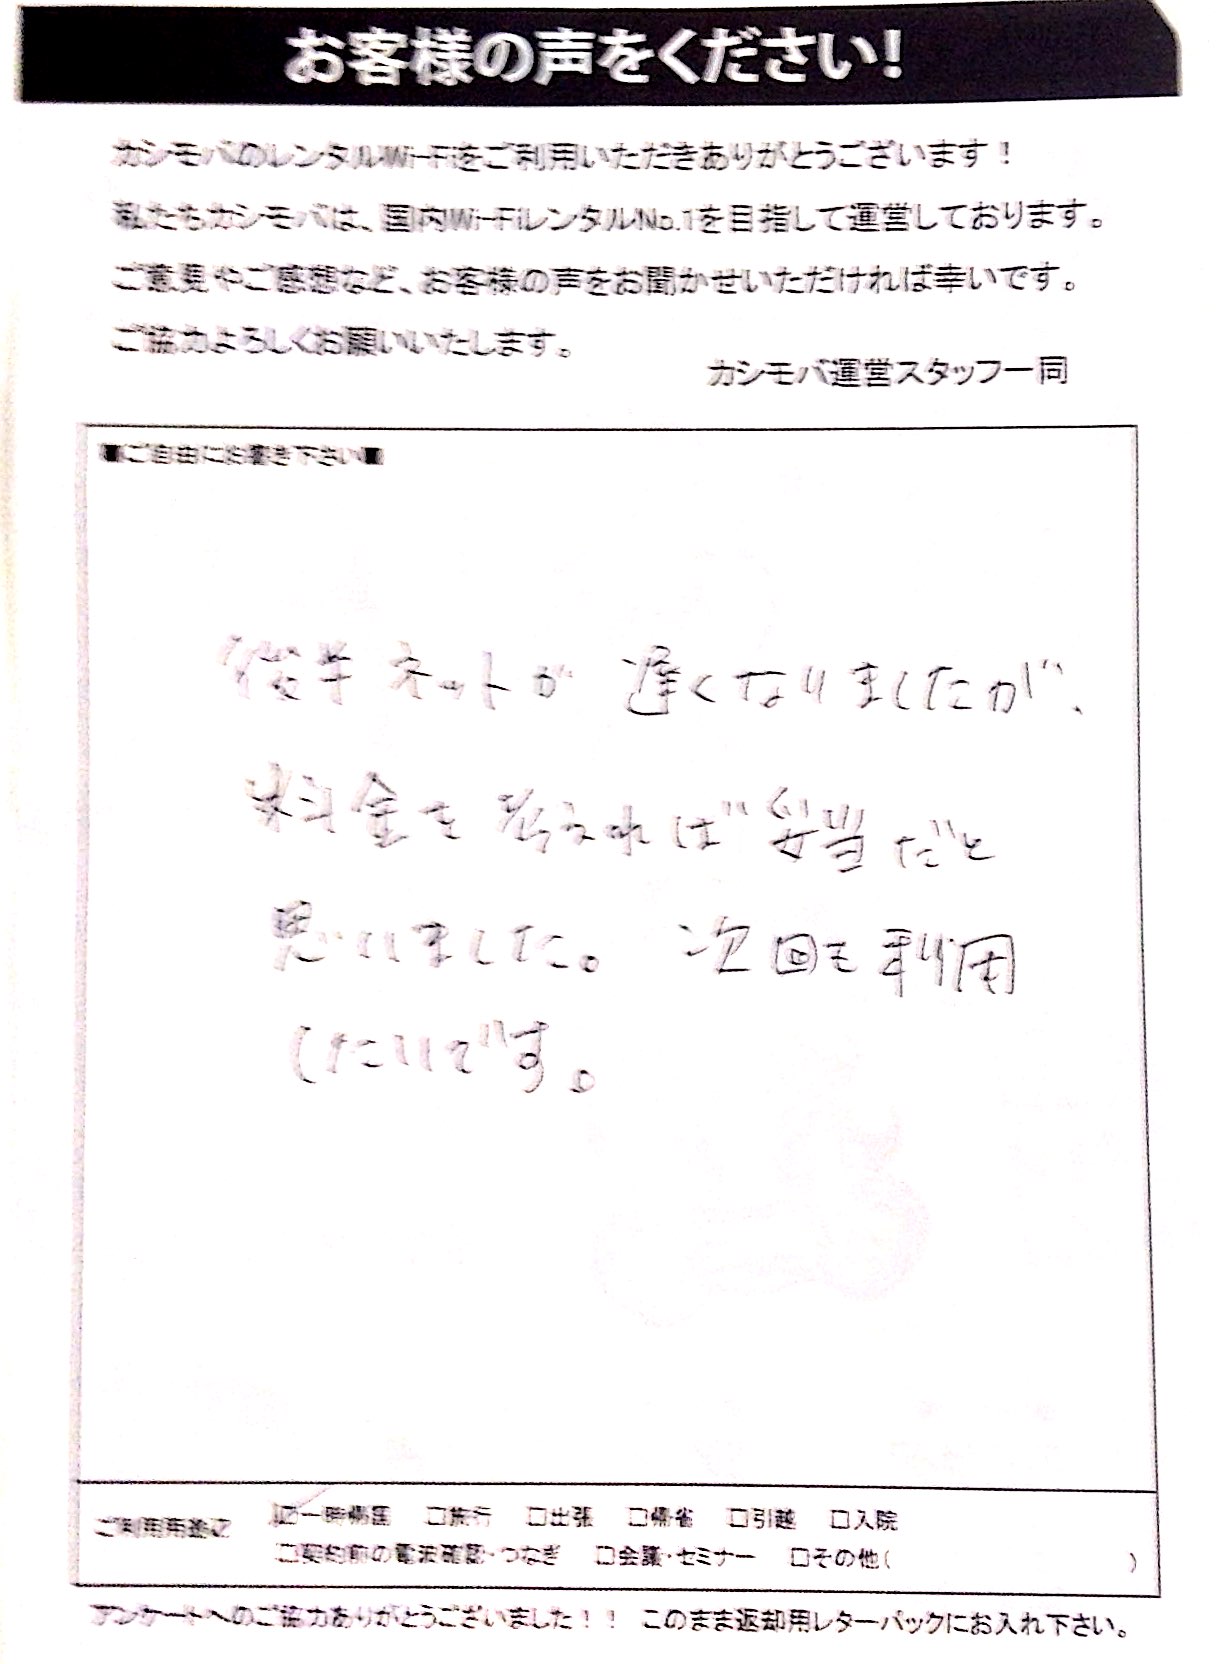 お客様の声をください!
カシモバのレンタルWi-Fiをご利用いただきありがとうございます！
私たちカシモバは、国内Wi-FiレンタルNo.1を目指して運営しております。
ご意見やご感想など、お客様の声をお聞かせいただければ幸いです。
ご協力よろしくお願いいたします。
カシモバ運営スタッフ一同
■ご自由にお書き下さい■
後半ネットが遅くなりましたが、
料金を考えれば妥当だと
思いました。次回も利用
したいです。
ご利用用途 ☑一時帰国 □旅行 □出張 □帰省 □引越 □入院
□契約前の電波確認・つなぎ □会議・セミナー □その他( )
アンケートへのご協力ありがとうございました！！ このまま返却用レターパックにお入れ下さい。